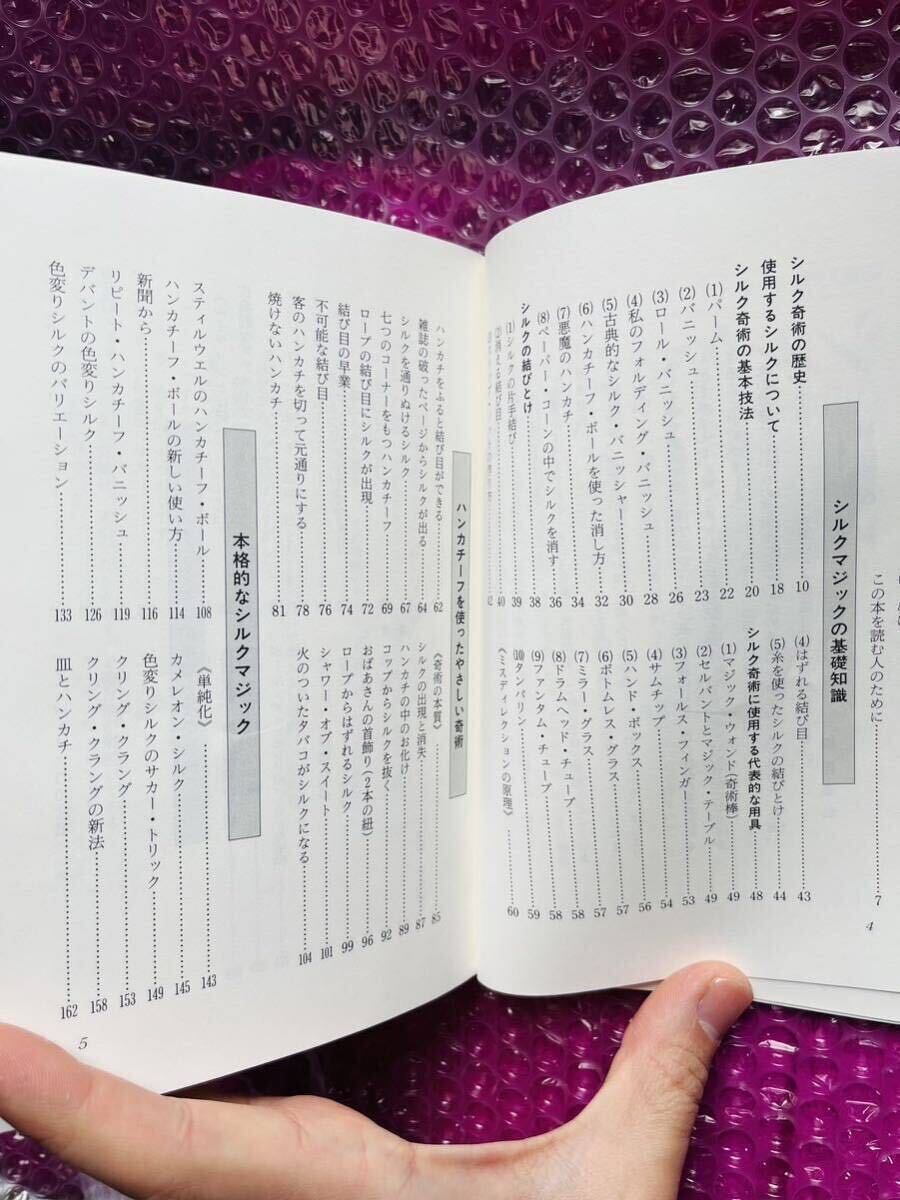 この本を読む人のために……7
シルクマジックの基礎知識
シルク奇術の歴史……10
使用するシルクについて……18
シルク奇術の基本技法……20
(1)パーム……22
(2)バニッシュ……23
(3)ロール・バニッシュ……26
(4)私のフォルディング・バニッシュ……28
(5)古典的なシルク・バニッシャー……30
(6)ハンカチーフ・ボールを使った消し方……32
(7)悪魔のハンカチ……34
(8)ペーパー・コーンの中でシルクを消す……36
シルクの結びとけ……38
(1)シルクの片手結び……39
(2)消える結び目……40
(4)はずれる結び目……43
(5)糸を使ったシルクの結びとけ……44
シルク奇術に使用する代表的な用具……48
(1)マジック・ウォンド(奇術棒)……49
(2)セルバントとマジック・テーブル……49
(3)フォールス・フィンガー……53
(4)サムチップ……54
(5)ハンド・ボックス……56
(6)ボトムレス・グラス……57
(7)ミラー・グラス……57
(8)ドラムヘッド・チューブ……58
(9)ファンタム・チューブ……58
(10)タンバリン……59
《ミスディレクションの原理》……60
4
ハンカチーフを使ったやさしい奇術
ハンカチをふると結び目ができる……62
雑誌の破ったページからシルクが出る……64
シルクを通りぬけるシルク……67
七つのコーナーをもつハンカチーフ……69
ロープの結び目にシルクが出現……72
結び目の早業……74
不可能な結び目……76
客のハンカチを切って元通りにする……78
焼けないハンカチ……81
《奇術の本質》……85
シルクの出現と消失……87
ハンカチの中のお化け……89
コップからシルクを抜く……92
おばあさんの首飾り(2本の紐)……96
ロープからはずれるシルク……99
シャワー・オブ・スイート……101
火のついたタバコがシルクになる……104
本格的なシルクマジック
スティルウエルのハンカチーフ・ボール……108
ハンカチーフ・ボールの新しい使い方……114
新聞から……116
リピート・ハンカチーフ・バニッシュ……119
デバントの色変りシルク……126
色変りシルクのバリエーション……133
《単純化》……143
カメレオン・シルク……145
色変りシルクのサカー・トリック……149
クリング・クラング……153
クリング・クラングの新法……158
皿とハンカチ……162
5